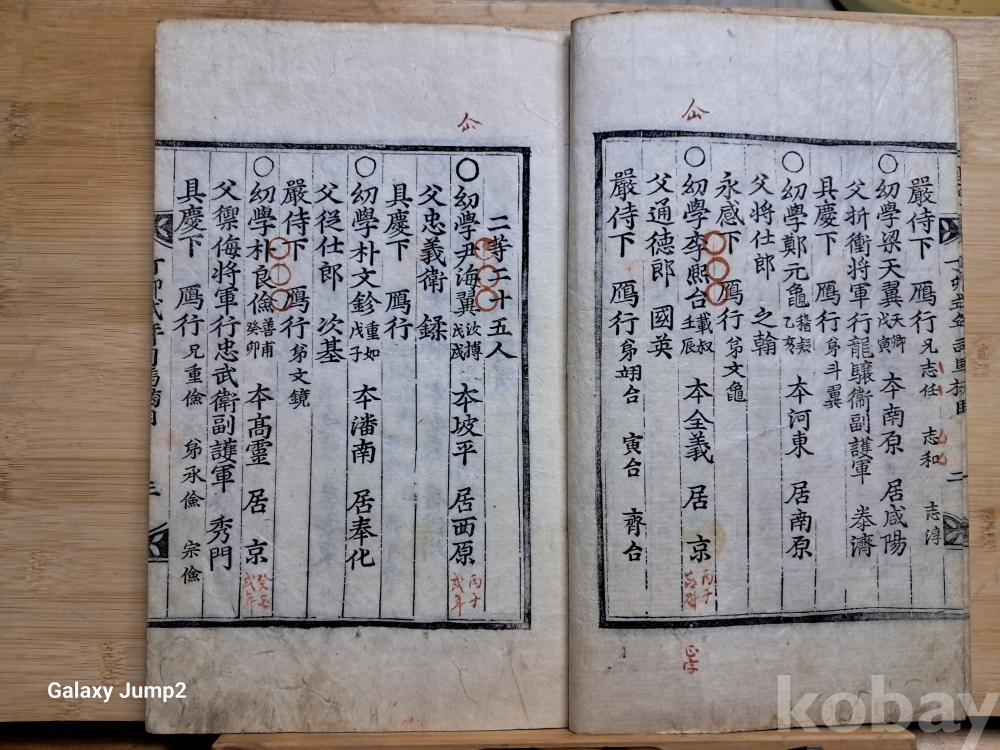 嚴侍下 鴈行兄志任 志和 志淳
○幼學梁天翼天卿戊寅 本南原 居咸陽
父折衝將軍行龍驤衛副護軍 㳟濟
具慶下 鴈行弟斗翼
○幼學鄭元龜稽疑乙亥 本河東 居南原
父將仕郎 之翰
永感下 鴈行弟文龜
○幼學李熙台載叔壬辰 本全義 居京
丙子
父通德郎 國英
嚴侍下 鴈行弟翊台 寅台 齊台
二等二十五人
○幼學尹海翼汝搏戊戌 本坡平 居西原
丙子式年
父忠義衛 鍒
具慶下 鴈行
○幼學朴文鉁重如戊子 本潘南 居奉化
父從仕郎 次基
嚴侍下 鴈行弟文鏡
○幼學朴良儉善甫癸卯 本高靈 居京
式年
父禦侮將軍行忠武衛副護軍 秀門
具慶下 鴈行兄重儉 弟承儉 宗儉
三
二
Galaxy Jump2
kobay